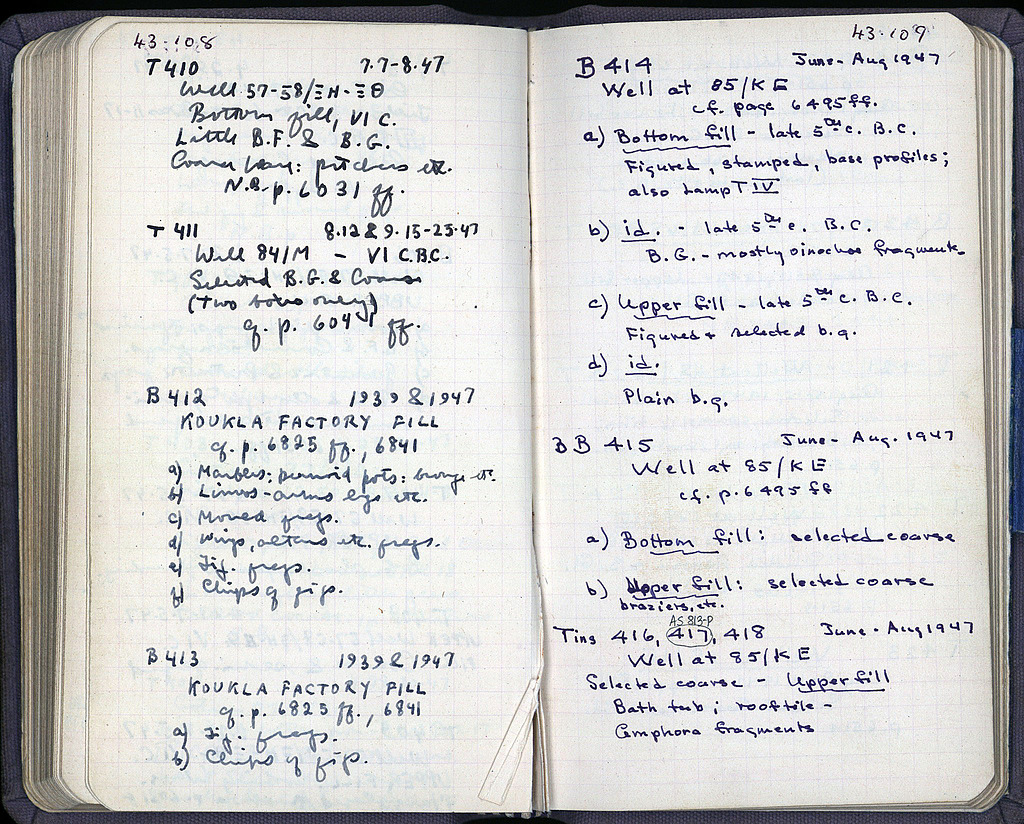 43-108
T 410 7.7-8.47
Well 57-58/ΞΗ-ΞΘ
Bottom fill, VI C.
Little B.F. & B.G.
Coarse ware: pitchers etc.
N.B. p. 6031 ff.
T 411 8.12 & 9.15-25.47
Well 84/M - VI C.B.C.
Selected B.G. & Coarse
(Two boxes only)
cf. p. 6041 ff.
B 412 1939 & 1947
KOUKLA FACTORY FILL
cf. p. 6825 ff., 6841
a) Marbles: pots: etc.
b) Limbs - arms legs etc.
c) frags.
d) Wings, altars etc. frags.
e) Fig. frags.
f) Chips of figs.
B 413 1939 & 1947
KOUKLA FACTORY FILL
cf. p. 6825 ff., 6841
a) Fig. frags.
b) Chips of figs.
43-109
B 414 June-Aug 1947
Well at 85/ΚΕ
cf. page 6495 ff.
a) Bottom fill - late 5th c. B.C.
Figured, stamped, base profiles;
also Lamp T IV
b) id. - late 5th c. B.C.
B.G. - mostly oinochoe fragments
c) Upper fill - late 5th c. B.C.
Figured & selected b.g.
d) id.
Plain b.g.
BB 415 June-Aug. 1947
Well at 85/ΚΕ
cf. p. 6495 ff
a) Bottom fill: selected coarse
b) Upper fill: selected coarse
braziers, etc.
AS 813-P
Tins 416, 417, 418 June-Aug 1947
Well at 85/ΚΕ
Selected coarse - Upper fill
Bath tub; rooftile -
Amphora fragments